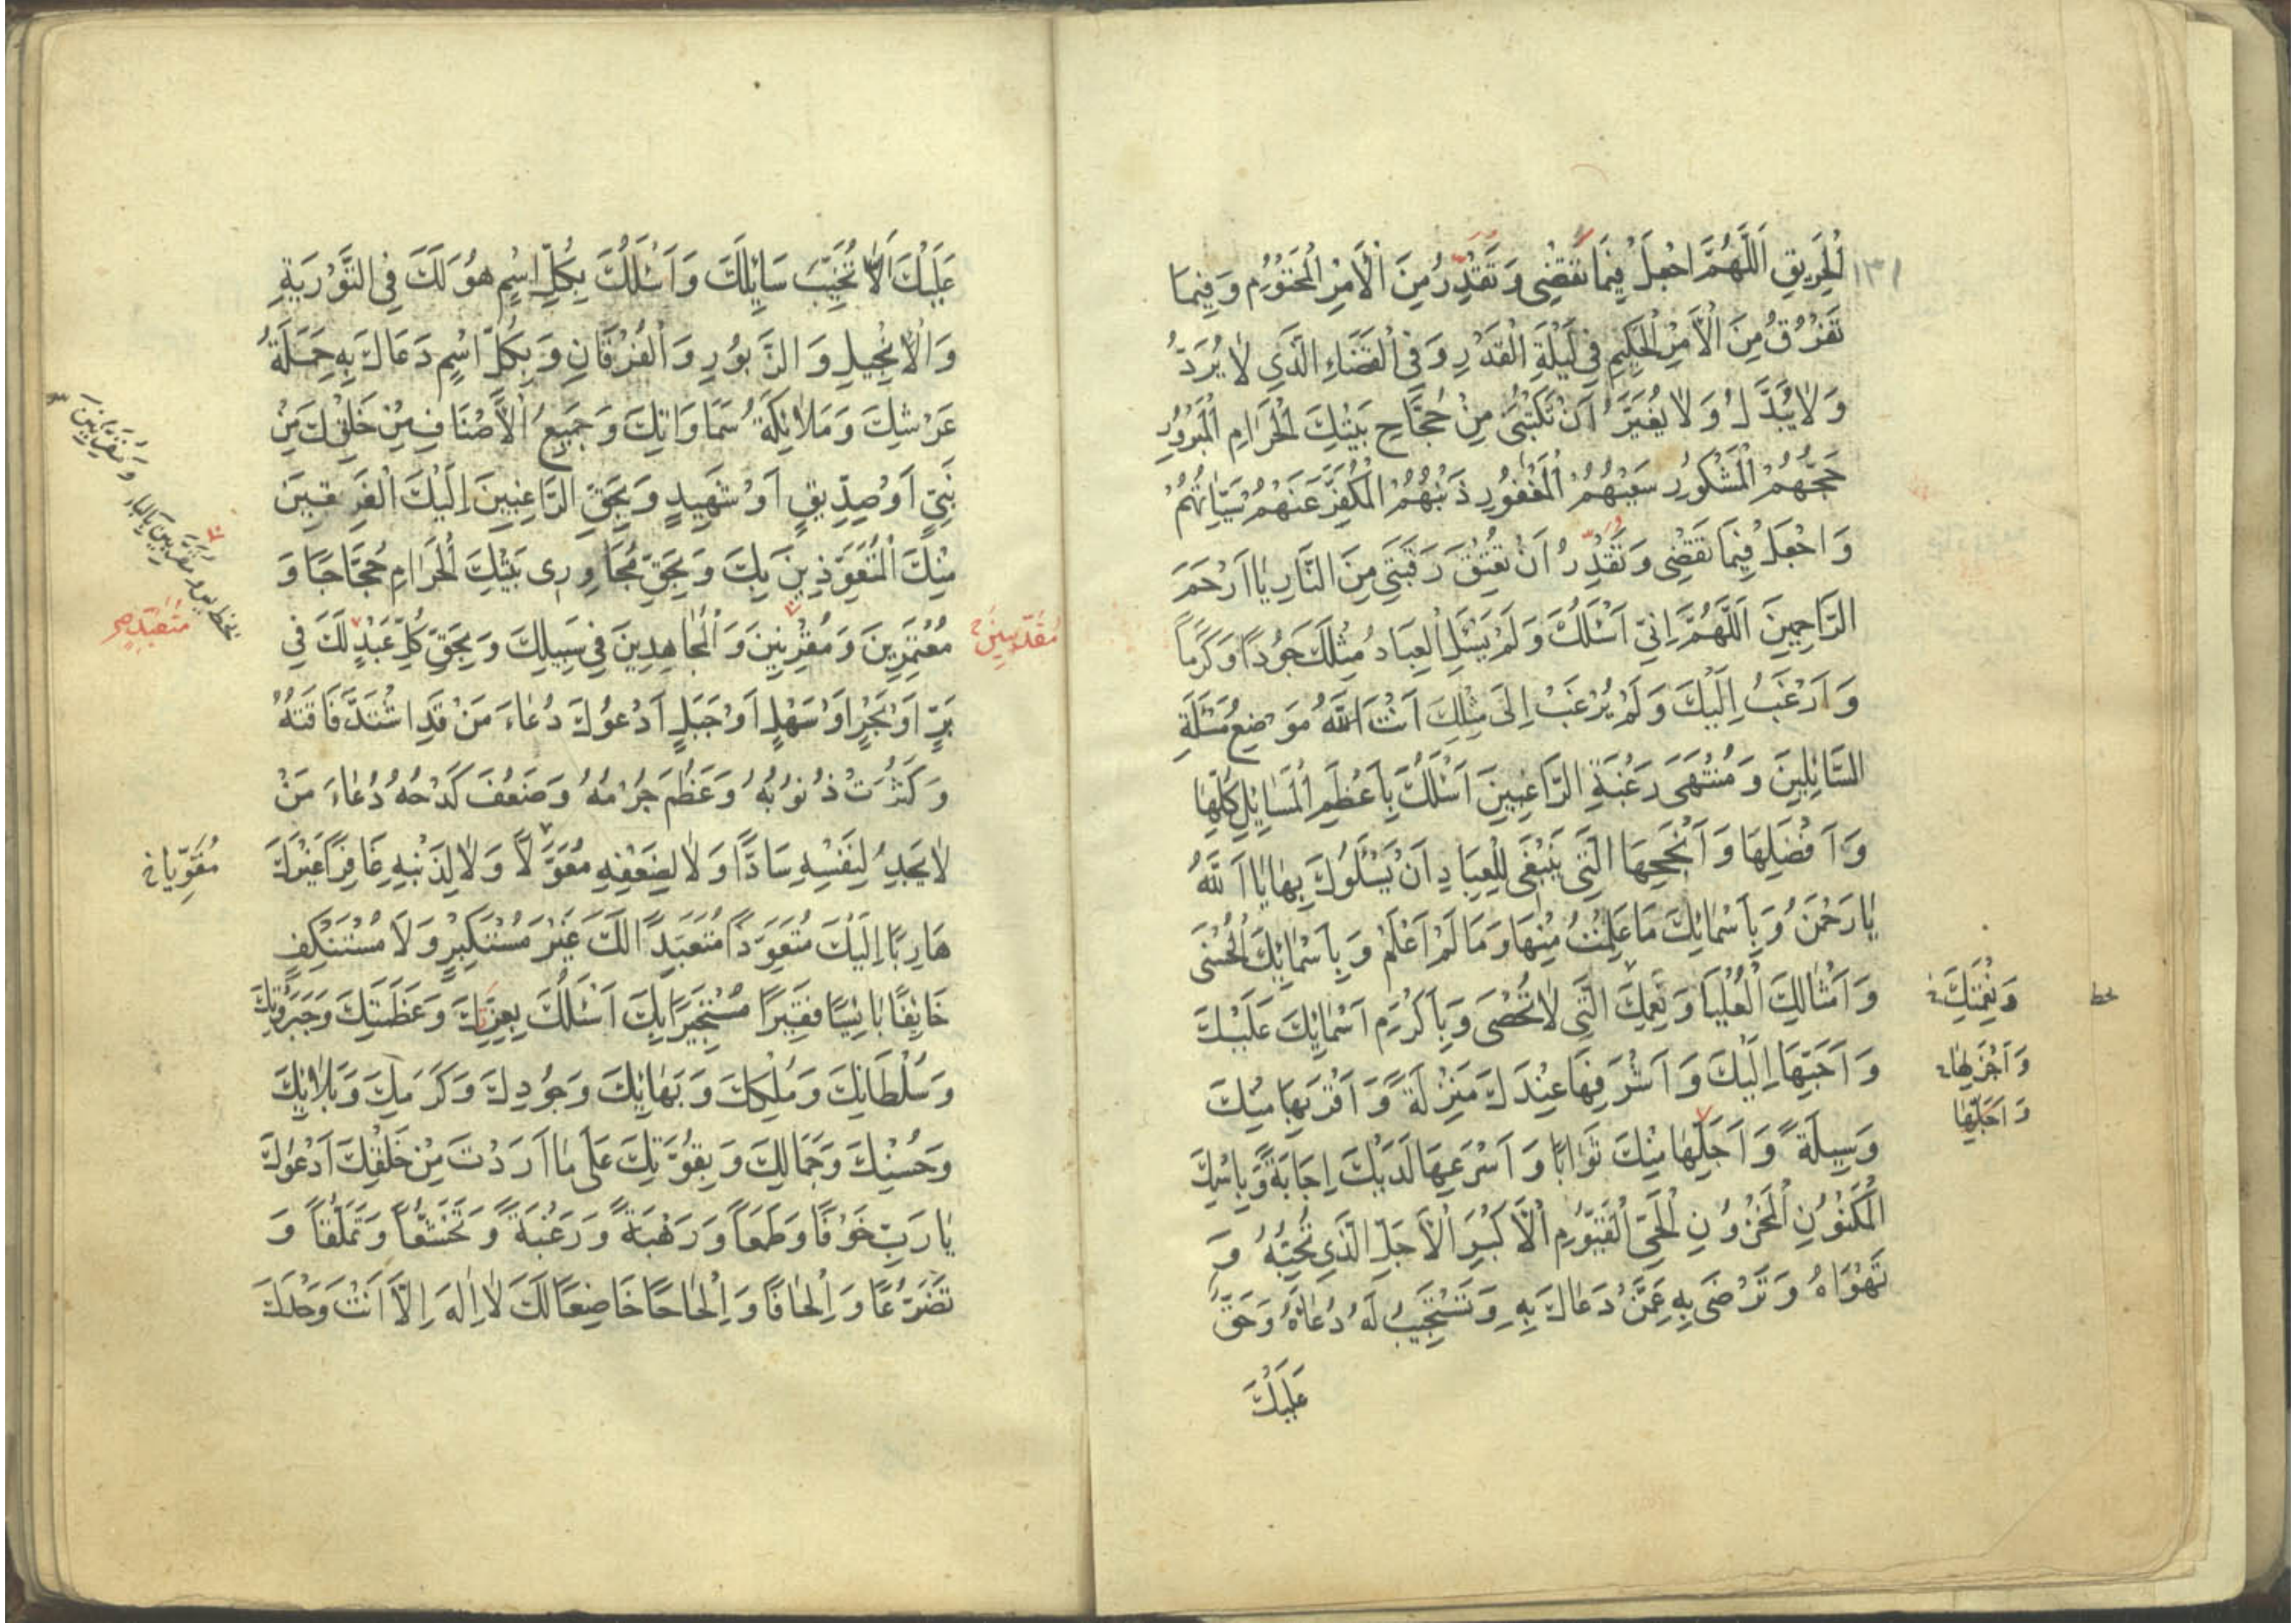 ١٣١
الْحَرِيقِ اَللَّهُمَّ اجْعَلْ فِيمَا تَقْضِى وَتُقَدِّرُ مِنَ الْأَمْرِ الْمَحْتُومِ وَفِيمَا
تَفْرُقُ مِنَ الْأَمْرِ الْحَكِيمِ فِي لَيْلَةِ الْقَدْرِ وَفِى الْقَضَاءِ الَّذِي لَا يُرَدُّ
وَلَا يُبَدَّلُ وَلَا يُغَيَّرُ أَنْ تَكْتُبَنِى مِنْ حُجَّاجِ بَيْتِكَ الْحَرَامِ الْمَبْرُورِ
حَجُّهُمْ الْمَشْكُورِ سَعْيُهُمْ الْمَغْفُورِ ذَنْبُهُمْ الْمُكَفَّرِ عَنْهُمْ سَيِّئَاتُهُمْ
وَاجْعَلْ فِيمَا تَقْضِى وَتُقَدِّرُ أَنْ تُعْتِقَ رَقَبَتِي مِنَ النَّارِ يَا أَرْحَمَ
الرَّاحِمِينَ اَللَّهُمَّ إِنِّي أَسْئَلُكَ وَلَمْ يَسْئَلِ الْعِبَادُ مِثْلَكَ جُودًا وَكَرَمًا
وَأَرْغَبُ إِلَيْكَ وَلَمْ يُرْغَبْ إِلَى مِثْلِكَ أَنْتَ اللَّهُ مَوْضِعُ مَسْئَلَةِ
السَّائِلِينَ وَمُنْتَهَى رَغْبَةِ الرَّاغِبِينَ أَسْئَلُكَ بِأَعْظَمِ الْمَسَائِلِ كُلِّهَا
وَأَفْضَلِهَا وَأَنْجَحِهَا الَّتِى يَنْبَغِى لِلْعِبَادِ أَنْ يَسْئَلُوكَ بِهَا يَا اَللَّهُ
يَا رَحْمَنُ وَبِأَسْمَائِكَ مَا عَلِمْتُ مِنْهَا وَمَا لَمْ أَعْلَمْ وَبِأَسْمَائِكَ الْحُسْنَى
وَأَمْثَالِكَ الْعُلْيَا وَنِعَمِكَ الَّتِى لَا تُحْصَى وَبِأَكْرَمِ أَسْمَائِكَ عَلَيْكَ
وَنِعْمَتِكَ
وَأَحَبِّهَا إِلَيْكَ وَأَشْرَفِهَا عِنْدَكَ مَنْزِلَةً وَأَقْرَبِهَا مِنْكَ
وَأَجْزَلِهَا
وَأَجَلِّهَا
وَسِيلَةً وَأَجَلِّهَا مِنْكَ ثَوَابًا وَأَسْرَعِهَا لَدَيْكَ إِجَابَةً وَبِاسْمِكَ
الْمَكْنُونِ الْمَخْزُونِ الْحَيِّ الْقَيُّومِ الْأَكْبَرِ الْأَجَلِّ الَّذِي تُحِبُّهُ وَ
تَهْوَاهُ وَتَرْضَى بِهِ عَمَّنْ دَعَاكَ بِهِ وَتَسْتَجِيبُ لَهُ دُعَاهُ وَحَقٌّ
عَلَيْكَ
عَلَيْكَ أَلَّا تُخَيِّبَ سَائِلَكَ وَأَسْئَلُكَ بِكُلِّ اسْمٍ هُوَ لَكَ فِى التَّوْرَيةِ
وَالْإِنْجِيلِ وَالزَّبُورِ وَالْفُرْقَانِ وَبِكُلِّ اسْمٍ دَعَاكَ بِهِ حَمَلَةُ
عَرْشِكَ وَمَلَائِكَةُ سَمَاوَاتِكَ وَجَمِيعُ الْأَصْنَافِ مِنْ خَلْقِكَ مِنْ
نَبِيٍّ أَوْ صِدِّيقٍ أَوْ شَهِيدٍ وَبِحَقِّ الرَّاغِبِينَ إِلَيْكَ الْفَرِقِينَ
مِنْكَ الْمُتَعَوِّذِينَ بِكَ وَبِحَقِّ مُجَاوِرِى بَيْتِكَ الْحَرَامِ حُجَّاجًا وَ
مُعْتَمِرِينَ وَمُقْرِنِينَ وَالْمُجَاهِدِينَ فِي سَبِيلِكَ وَبِحَقِّ كُلِّ عَبْدٍ لَكَ فِي
مُقَدِّسِينَ
مُتَعَبِّدٍ
بَرٍّ أَوْ بَحْرٍ أَوْ سَهْلٍ أَوْ جَبَلٍ أَدْعُوكَ دُعَاءَ مَنْ قَدِ اشْتَدَّ فَاقَتُهُ
وَكَثُرَتْ ذُنُوبُهُ وَعَظُمَ جُرْمُهُ وَضَعُفَ كَدْحُهُ دُعَاءَ مَنْ
لَا يَجِدُ لِنَفْسِهِ سَادًّا وَلَا لِضَعْفِهِ مُعَوَّلًا وَلَا لِذَنْبِهِ غَافِرًا غَيْرَكَ
مُقَوِّيًا
هَارِبًا إِلَيْكَ مُتَعَوِّذًا مُتَعَبِّدًا لَكَ غَيْرَ مُسْتَكْبِرٍ وَلَا مُسْتَنْكِفٍ
خَائِفًا بَائِسًا فَقِيرًا مُسْتَجِيرًا بِكَ أَسْئَلُكَ بِعِزَّتِكَ وَعَظَمَتِكَ وَجَبَرُوتِكَ
وَسُلْطَانِكَ وَمُلْكِكَ وَبَهَائِكَ وَجُودِكَ وَكَرَمِكَ وَبِآلَائِكَ
وَحُسْنِكَ وَجَمَالِكَ وَبِقُوَّتِكَ عَلَى مَا أَرَدْتَ مِنْ خَلْقِكَ أَدْعُوكَ
يَا رَبِّ خَوْفًا وَطَمَعًا وَرَهْبَةً وَرَغْبَةً وَتَخَشُّعًا وَتَمَلُّقًا وَ
تَضَرُّعًا وَإِلْحَافًا وَإِلْحَاحًا خَاضِعًا لَكَ لَا إِلَهَ إِلَّا أَنْتَ وَحْدَكَ